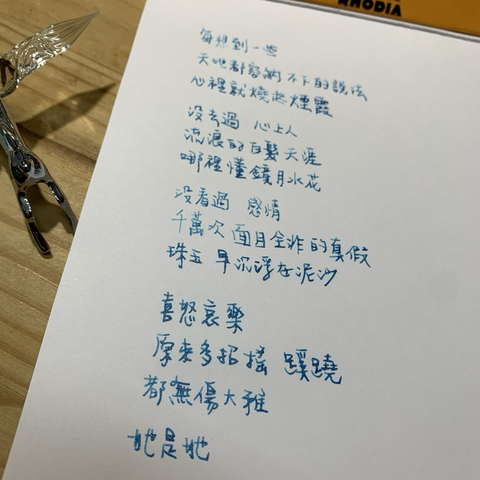 RHODIA
每想到一些
天地都容納不下的說法
心裡就燒起煙霞
沒去過 心上人
流浪的白髮天涯
哪裡懂鏡月水花
沒看過 感情
千萬次面目全非的真假
珠玉早沉浮在泥沙
喜怒哀樂
原來多招搖 蹊蹺
都無傷大雅
她是她